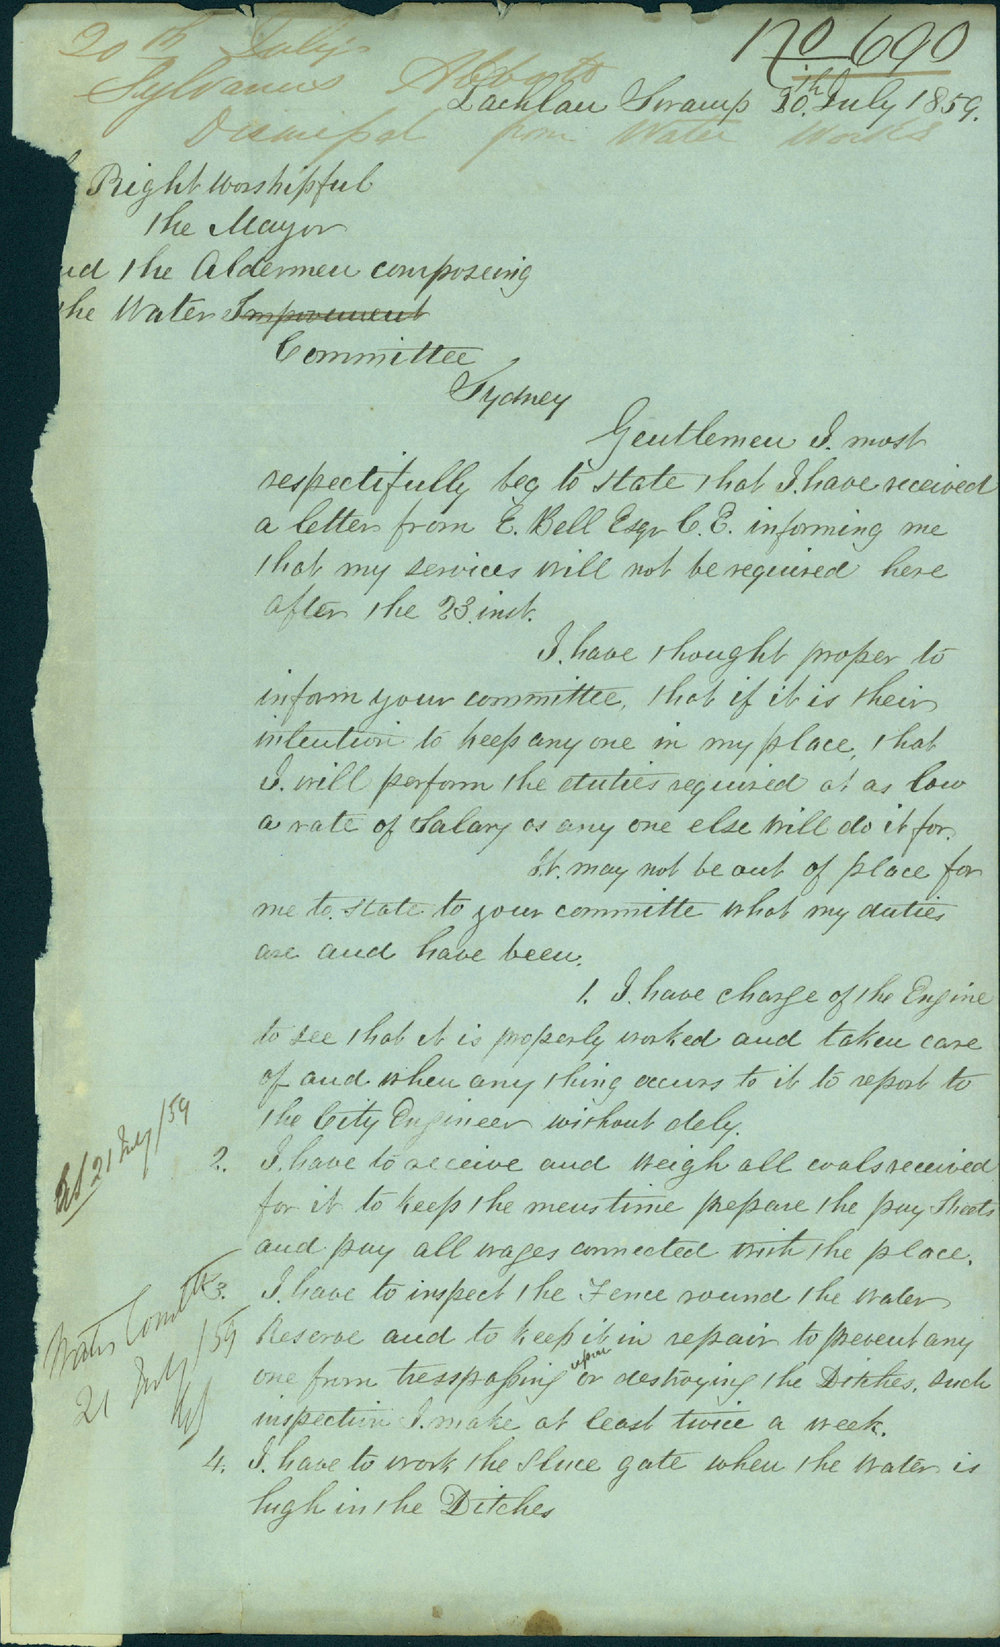 No 690
20th July
Sylvanus Abbott
Dismissal from Water Works
Lachlan Swamp 20th July 1859.
Right Worshipful
the Mayor
nd the Aldermen composeing
the Water Impovement
Committee
Sydney
Gentlemen I. most
respectifully beg to state that I. have received
a letter from E. Bell Esqr C.E. informing me
that my services will not be required here
after the 23. inst.
I. have thought proper to
inform your committee, that if it is their
intention to keep any one in my place, that
I. will perform the duties required at as low
a rate of Salary as any one else will do it for.
It. may not be out of place for
me to state to your committe what my duties
are and have been.
1. I. have charge of the Engine
to see that it is properly worked and taken care
of and when any thing occurs to it to report to
the City Engineer without dely.
2. I. have to receive and weigh all coals received
for it to keep the mens time prepare the pay Sheets
and pay all wages connected with the place.
3. I. have to inspect the Fence round the Water
Reserve and to keep it in repair to prevent any
one from tresspassing upon or destroying the Ditches. such
inspection I. make at least twice a week.
4. I. have to work the Sluce gate when the Water is
high in the Ditches
21 July/59
Water Comttee
21 July/59